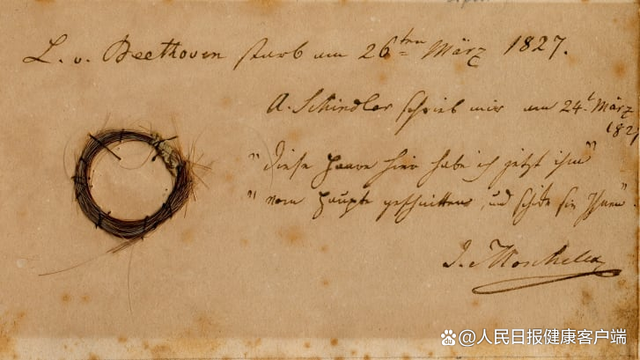 L. v. Beethoven starb am 26ten März 1827.
A. Schindler schrieb mir am 24t. März
1827
"diese Haare hier habe ich jetzt ihm"
"vom Haupte geschnitten, und schicke sie Ihnen".
I. Moscheles
@人民日报健康客户端